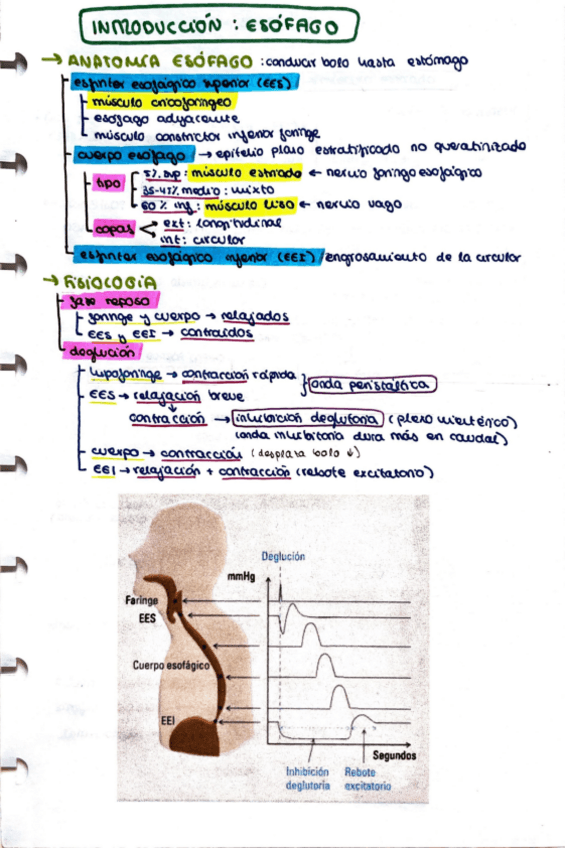 INTRODUCCIÓN : ESÓFAGO
→ ANATOMÍA ESÓFAGO : conducir bolo hasta estómago
esfínter esofágico superior (EES)
músculo cricofaríngeo
esófago adyacente
músculo constrictor inferior faringe
cuerpo esófago → epitelio plano estratificado no queratinizado
tipo
5% sup : músculo estriado ← nervio faringoesofágico
35-41% medio : mixto
60% inf : músculo liso ← nervio vago
capas
ext : longitudinal
int : circular
esfínter esofágico inferior (EEI) / engrosamiento de la circular
→ FISIOLOGÍA
fase reposo
faringe y cuerpo → relajados
EES y EEI → contraídos
deglución
hipofaringe → contracción rápida } onda peristáltica
EES → relajación breve
contracción → inhibición deglutoria (plexo mientérico)
(onda inhibitoria dura más en caudal)
cuerpo → contracción (desplaza bolo ↓)
EEI → relajación + contracción (rebote excitatorio)
Deglución
mmHg
Faringe
EES
Cuerpo esofágico
EEI
Segundos
Inhibición deglutoria
Rebote excitatorio